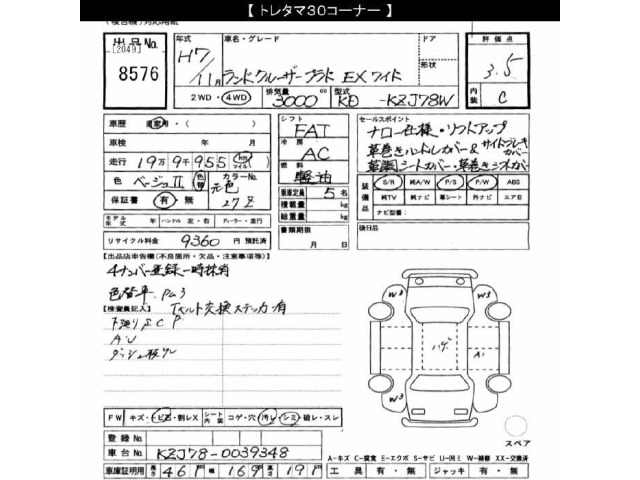 【 トレタマ30コーナー 】
出品No.
[2049]
8576
年式
H7
11月
車名・グレード
ランドクルーザープラド EX ワイド
ドア
形状
2WD・4WD
排気量
3000 cc
型式
KD -KZJ78W
評価点
3.5
内装
C
車歴 自家用・( )
車検 年 月
走行 19万9千955 km マイル
色 ベージュII 色替
カラーNo.
元色
27Z
保証書 有・無
モデル年式 年 ハンドル 左・右 ディーラー・並行
リサイクル料金 9360 円 預託済
シフト
FAT
冷房
AC
燃料
軽油
乗車定員 5 名
積載量 kg
総重量 kg
書類期限
月 日
セールスポイント
ナロー仕様・リフトアップ
革巻きハンドルカバー&サイドブレーキカバー
装備品
S/R 純A/W P/S P/W ABS
純TV 純ナビ 革シート 外ナビ エアB
ナビ型番:
後日品
【出品店申告欄(不良箇所・欠品・注意事項等)】
4ナンバー登録一時抹消
【検査員記入】 Tベルト交換ステッカー有
下廻りS.C.P
W3
W3
ハゲ
A1
W3
FW キズ・トビ石・割レX シート内装 コゲ・穴 汚レ・シミ 破レ・スレ
登録No.
車台No. KZJ78-0039348
車庫証明用 長さ 461 幅 169 高さ 191
工具 有・無 ジャッキ 有・無
スペア
A-キズ C-腐食 E-エクボ S-サビ U-凹ミ W-補修 XX-交換済